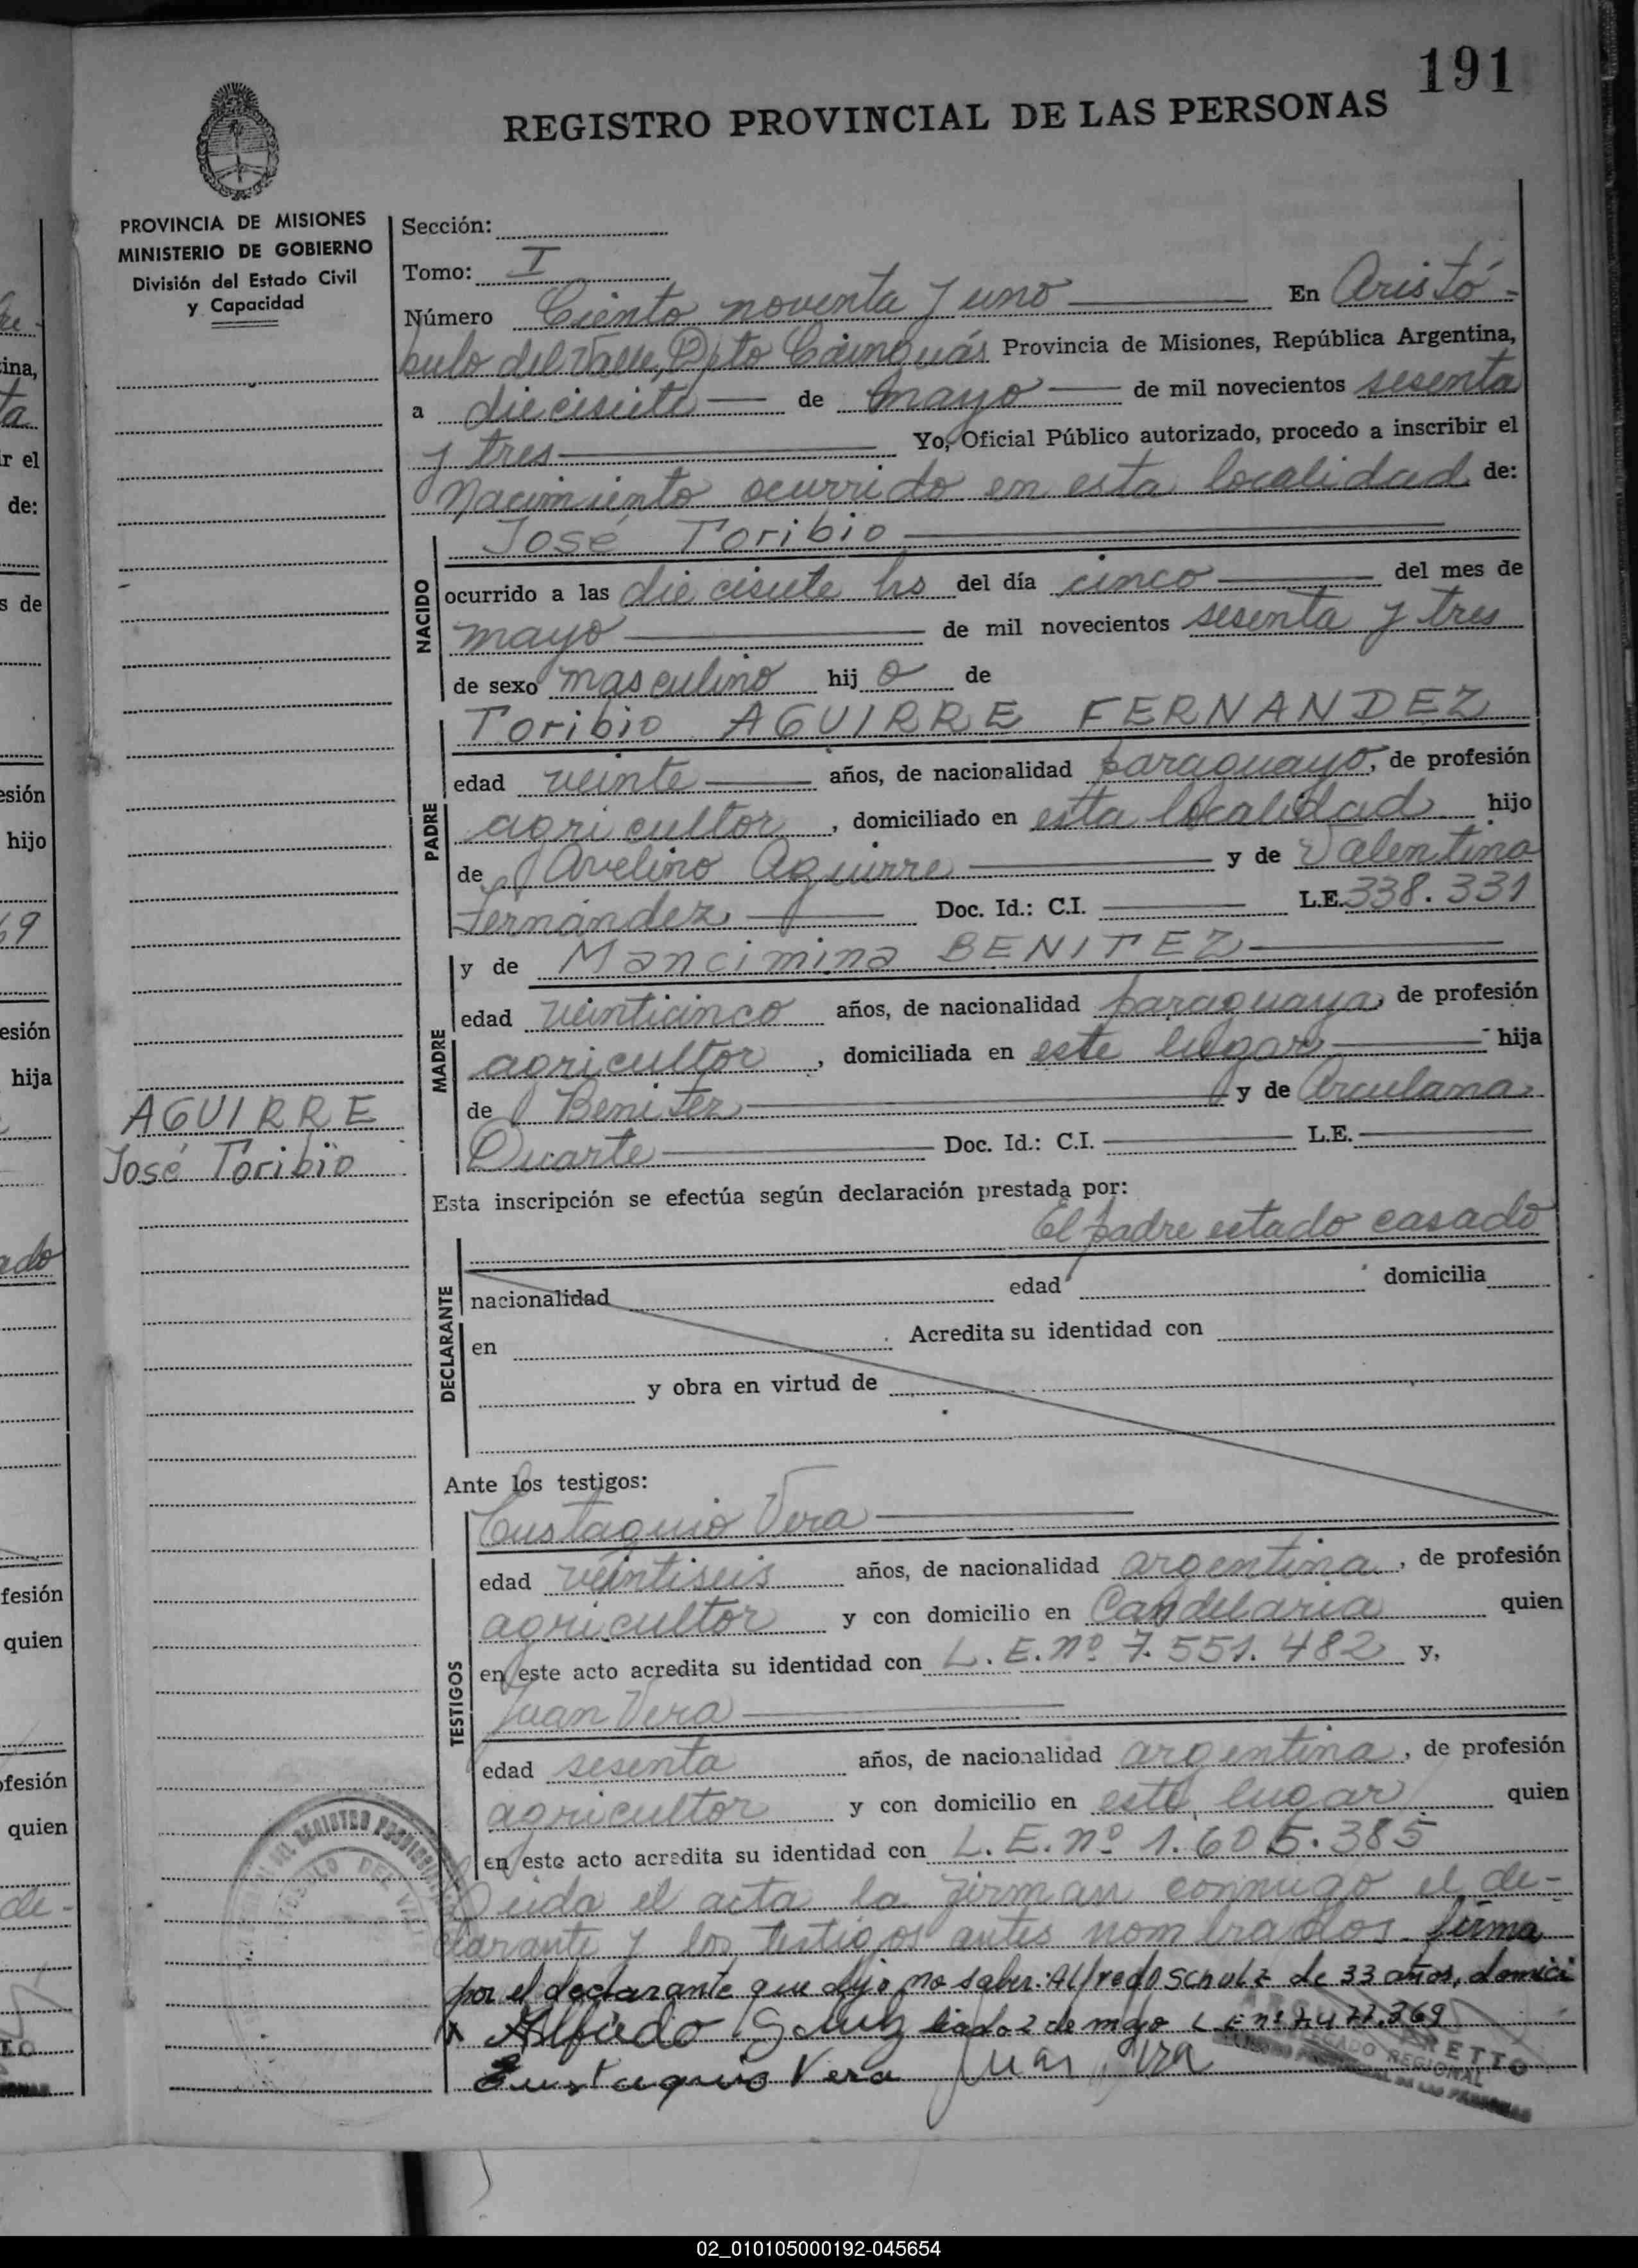 191
REGISTRO PROVINCIAL DE LAS PERSONAS
PROVINCIA DE MISIONES
MINISTERIO DE GOBIERNO
División del Estado Civil
y Capacidad
Sección:
Tomo: I
Número Ciento noventa y uno En Aristó-
bulo del Valle, Dpto Cainguás Provincia de Misiones, República Argentina,
a diecisiete de mayo de mil novecientos sesenta
y tres Yo, Oficial Público autorizado, procedo a inscribir el
Nacimiento ocurrido en esta localidad de:
NACIDO
José Toribio
ocurrido a las diecisiete hs del día cinco del mes de
mayo de mil novecientos sesenta y tres
de sexo masculino hijo de
PADRE
Toribio AGUIRRE FERNANDEZ
edad veinte años, de nacionalidad paraguayo, de profesión
agricultor, domiciliado en esta localidad hijo
de Avelino Aguirre y de Valentina
Fernández Doc. Id.: C.I. L.E. 338.331
MADRE
y de Mancimina BENITEZ
edad veinticinco años, de nacionalidad paraguaya, de profesión
agricultor, domiciliada en este lugar hija
de Benitez y de Arculana
Duarte Doc. Id.: C.I. L.E.
AGUIRRE
José Toribio
Esta inscripción se efectúa según declaración prestada por:
El padre estado casado
DECLARANTE
nacionalidad edad domicilia
en Acredita su identidad con
y obra en virtud de
Ante los testigos:
TESTIGOS
Eustaquio Vera
edad veintiseis años, de nacionalidad argentina, de profesión
agricultor y con domicilio en Candelaria quien
en este acto acredita su identidad con L.E. nº 7.551.482 y,
Juan Vera
edad sesenta años, de nacionalidad argentina, de profesión
agricultor y con domicilio en este lugar quien
en este acto acredita su identidad con L.E. nº 1.605.385
Leida el acta la firman conmigo el de-
clarante y los testigos antes nombrados. firma
por el declarante que dijo no saber: Alfredo Schulz de 33 años, domici
Alfredo Schulz liado 2 de mayo L E nº
Eustaquio Vera Juan Vera
RETTO
REGIONAL
02_010105000192-045654